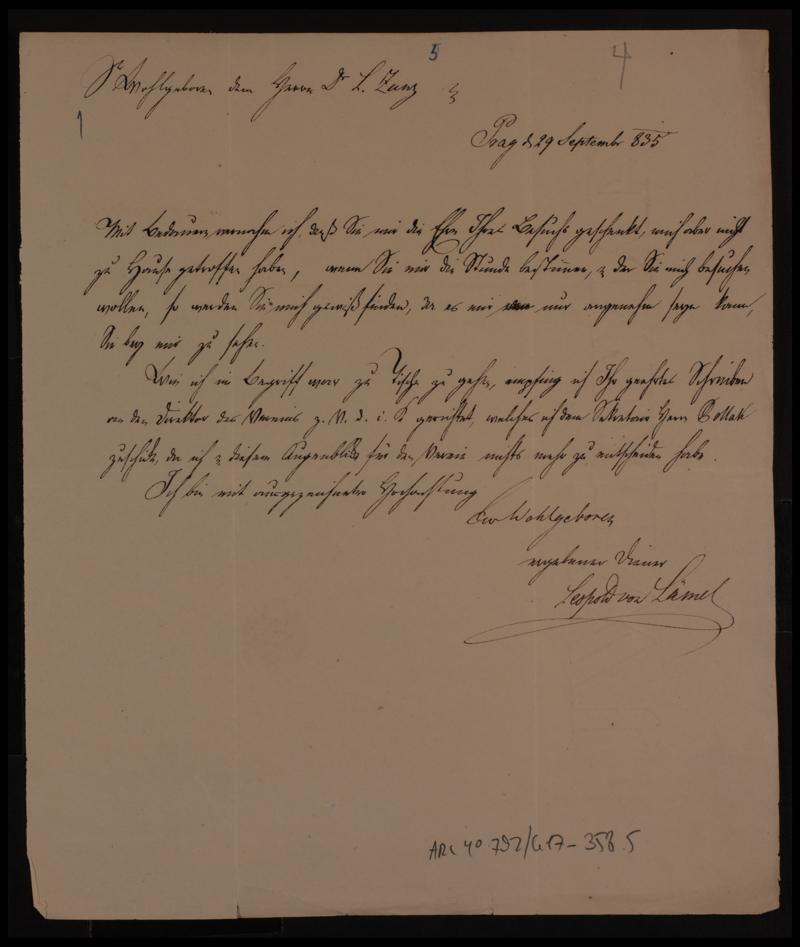 5
4
Sr Wohlgeboren dem Herrn Dr L. Zunz
1
Prag d. 29 September 835
Mit Bedauern vernahm ich, daß Sie mir die Ehre Ihres Besuchs geschenkt, mich aber nicht
zu Hause getroffen haben, wenn Sie mir die Stunde bestimmen, in der Sie mich besuchen
wollen, so werden Sie mich gewiß finden, da es mir nur angenehm seyn kann,
Sie bey mir zu sehen.
Wie ich im Begriff war zu Tische zu gehen, empfing ich Ihr geehrtes Schreiben
an den Direktor des Vereins z. V. d. i. K gerichtet, welches ich dem Sekretair Herrn Pollak
zuschickte, da ich in diesem Augenblick für den Verein nichts mehr zu entscheiden habe.
Ich bin mit ausgezeichneter Hochachtung
Euer Wohlgeboren
ergebener Diener
Leopold von Lämel
ARC 4o 792/G17-358.5